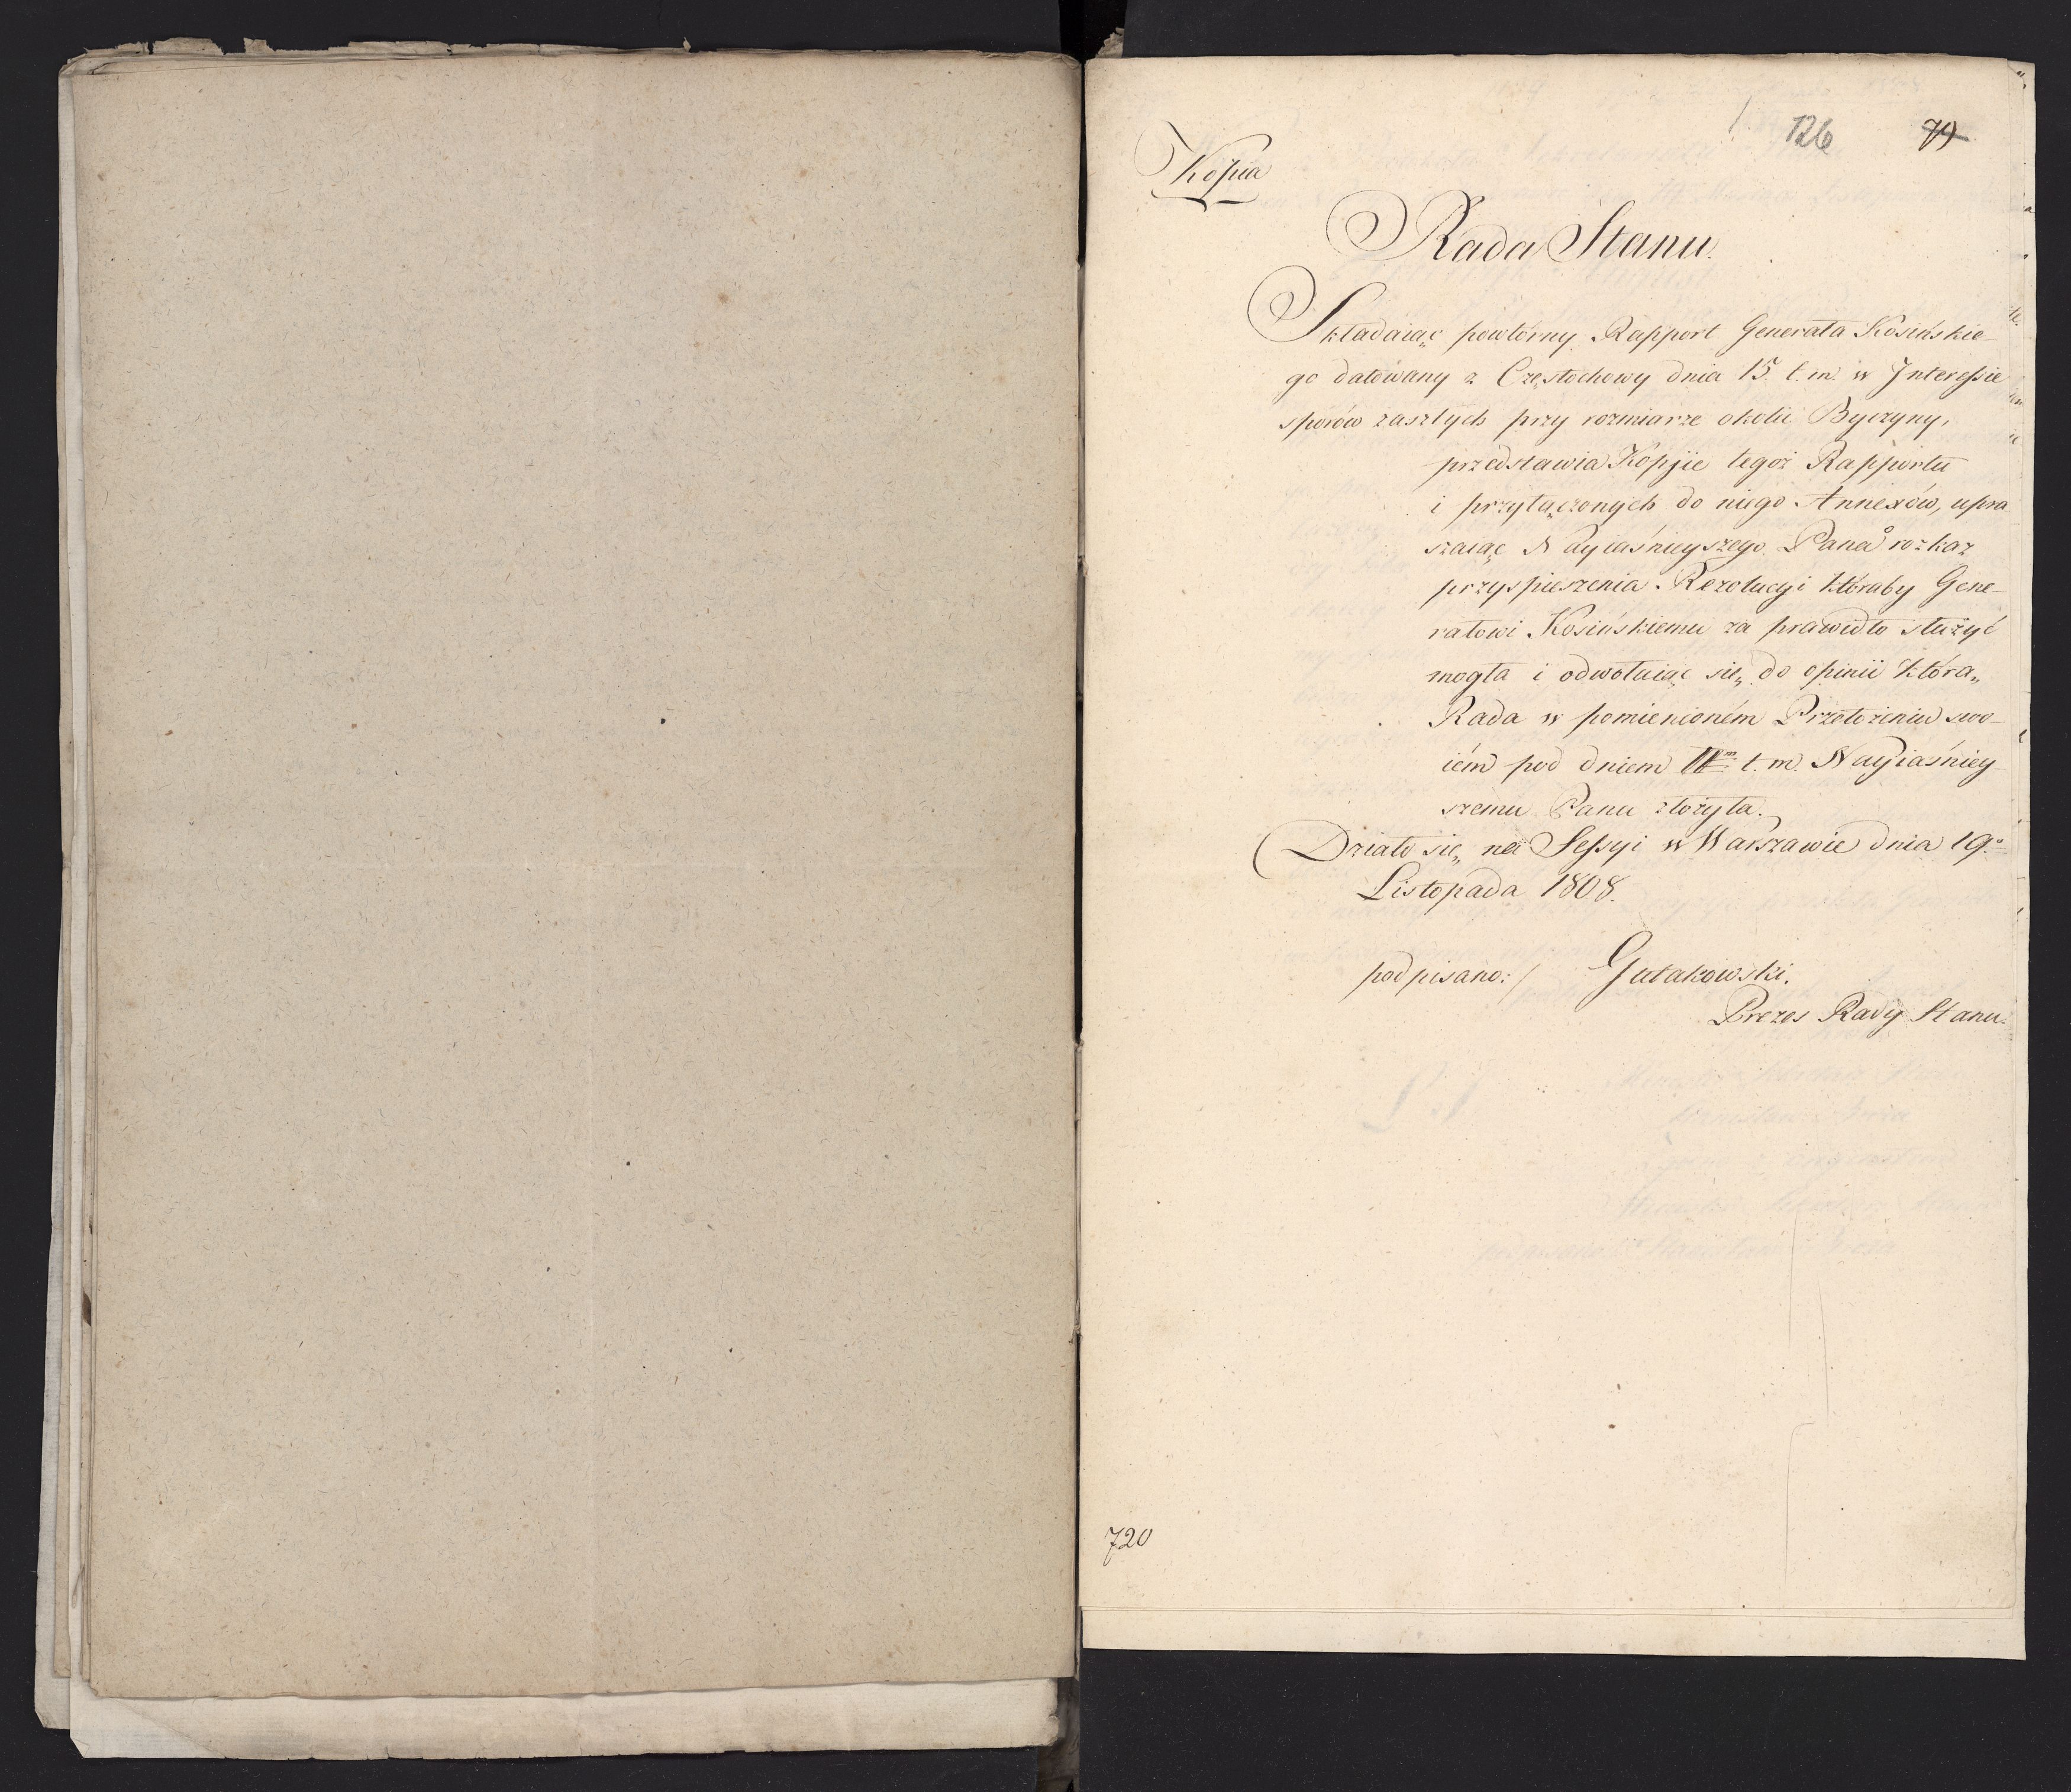 126 79
Kopia
Rada Stanu.
Składaiąc powtórny Rapport Generała Kosińskie-
go datowany z Częstochowy dnia 15. t. m. w Interessie
sporów zaszłych przy rozmiarze okolic Byczyny,
przedstawia Kopiie tegoż Rapportu
i przyłączonych do niego Annexów, upra
szaiąc Nayiaśnieyszego Pana o rozkaz
przyspieszenia Rezolucyi któraby Gene-
rałowi Kosińskiemu za prawidło służyć
mogła i odwołuiąc się do opinii którą
Rada w pomienioném Przełożeniu swo-
iém pod dniem t. m. Nayiaśniey
szemu Panu złożyła.
Działo się na Sessyi w Warszawie dnia 19o
Listopada 1808.
podpisano:/ Gutakowski.
Prezes Rady Stanu.
720